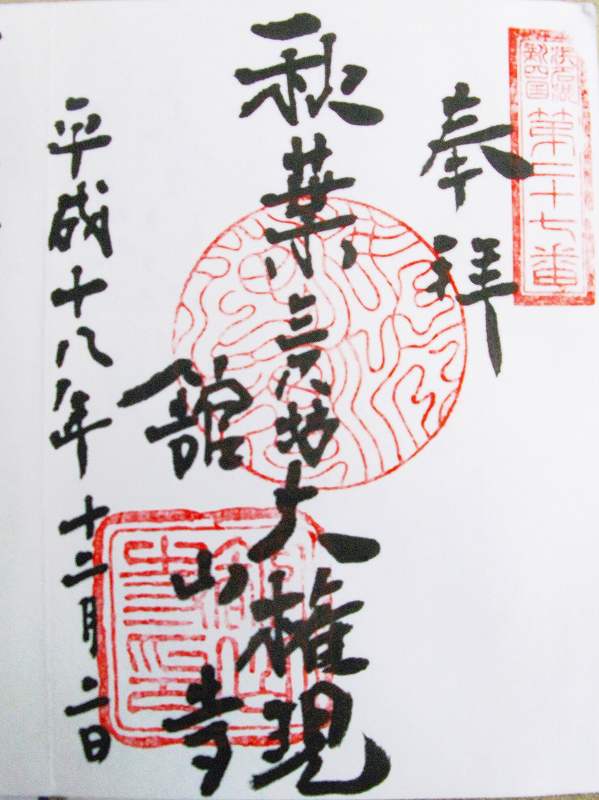 浜名湖
新四国
第二十七番
奉拝
秋葉三尺坊大権現
舘山寺
平成十八年 十二月二日